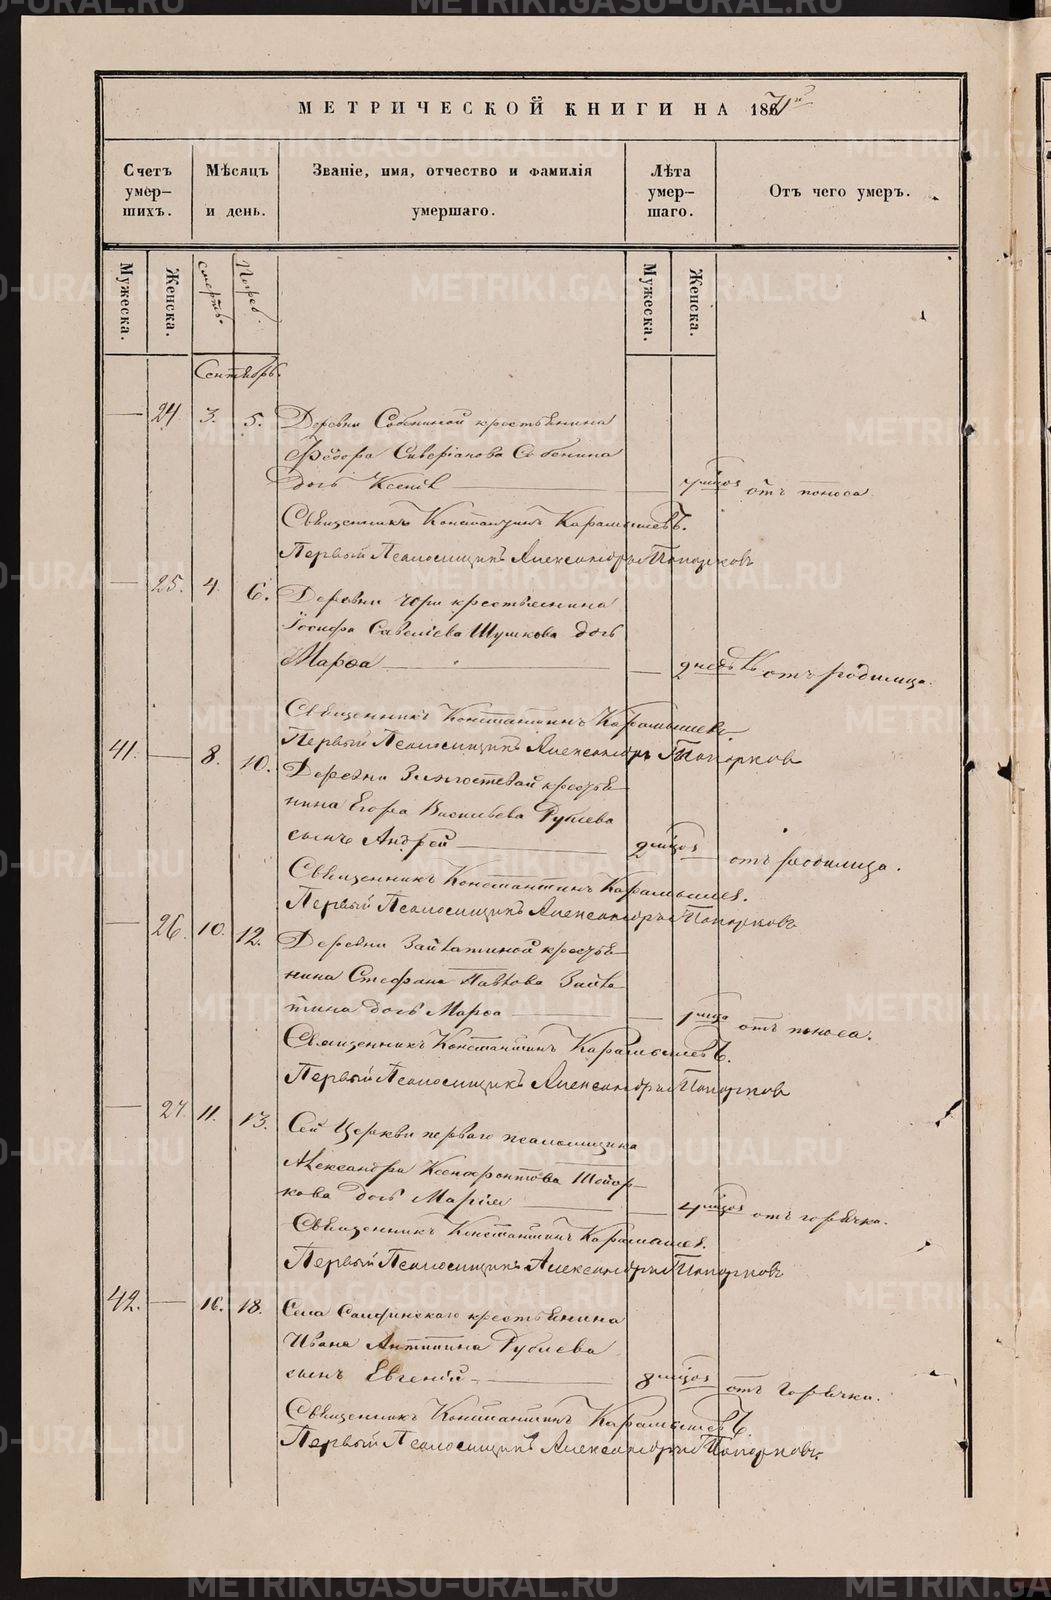 МЕТРИЧЕСКОЙ КНИГИ НА 1871й
Счетъ умер-шихъ.
Мѣсяцъ и день.
Званіе, имя, отчество и фамилія умершаго.
Лѣта умер-шаго.
Отъ чего умеръ.
Мужеска. Женска. смерть. Погреб. Мужеска. Женска.
Сентябрь.
— 24 3. 5. Деревни Собениной крестьянина
Ѳедора Сиверіанова Собенина
дочь Ксенія — — отъ поноса
Священникъ Константинъ Карамышевъ.
Первый Псаломщикъ Александръ Топорковъ
— 25. 4. 6. Деревни крестьянина
Іосифа Савеліева Шушкова дочь
Марѳа — — отъ родимца.
Священникъ Константинъ Карамышевъ.
Первый Псаломщикъ Александръ Топорковъ
41. — 8. 10. Деревни крестья-
нина Егора Васильева Рублева
сынъ Андрей — — отъ родимца.
Священникъ Константинъ Карамышев.
Первый Псаломщикъ Александръ Топорковъ
— 26. 10. 12. Деревни крестья-
нина Стефана Павлова
дочь Марѳа — — отъ поноса.
Священникъ Константинъ Карамышевъ.
Первый Псаломщикъ Александръ Топорков
— 27. 11. 13. Сей Церкви перваго псаломщика
Александра Ксенофонтова Топор-
кова дочь Марія — — отъ горячки.
Священникъ Константинъ Карамышев.
Первый Псаломщикъ Александръ Топорковъ
42. — 16. 18. Села крестьянина
Ивана Антипина Рублева
сынъ Евгеній — — отъ горячки.
Священникъ Константинъ Карамышевъ.
Первый Псаломщикъ Александръ Топорковъ.
METRIKI.GASO-URAL.RU